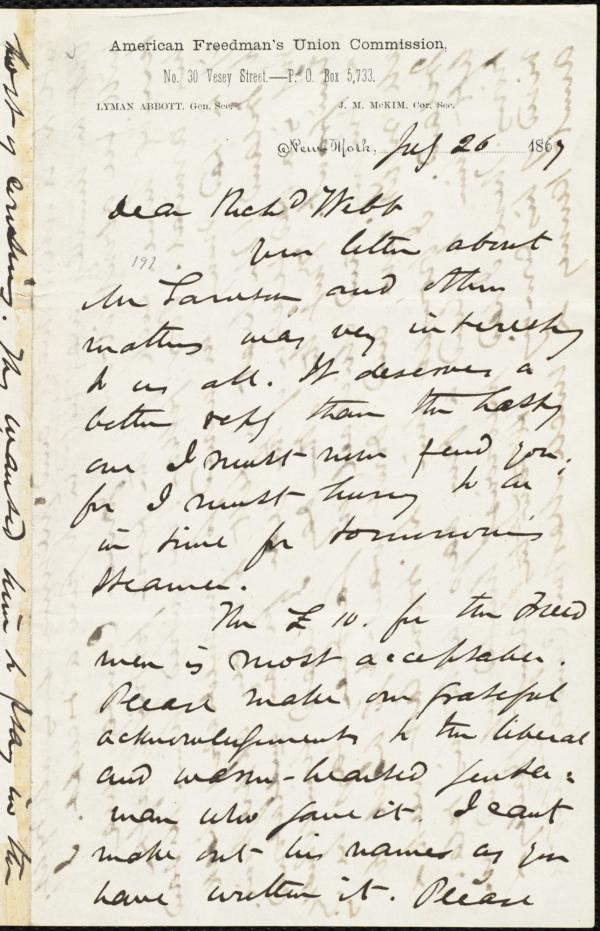 American Freedman's Union Commission,
No. 30 Vesey Street.—P. O. Box 5,733.
LYMAN ABBOTT, Gen. Sec. J. M. McKIM, Cor. Sec.
New-York, July 26 1867
dear Richd Webb
your letter about
Mr Garrison and other
matters was very interesting
to us all. It deserves a
better reply than the hasty
one I must now send you;
for I must hurry to be
in time for tomorrow's
steamer.
The £10. for the Freed
men is most acceptable.
Please make our grateful
acknowledgements to the liberal
and warm-hearted gentle=
man who gave it. I cant
make out his names as you
have written it. Please
197
most of evening. They wanted him to stay in the